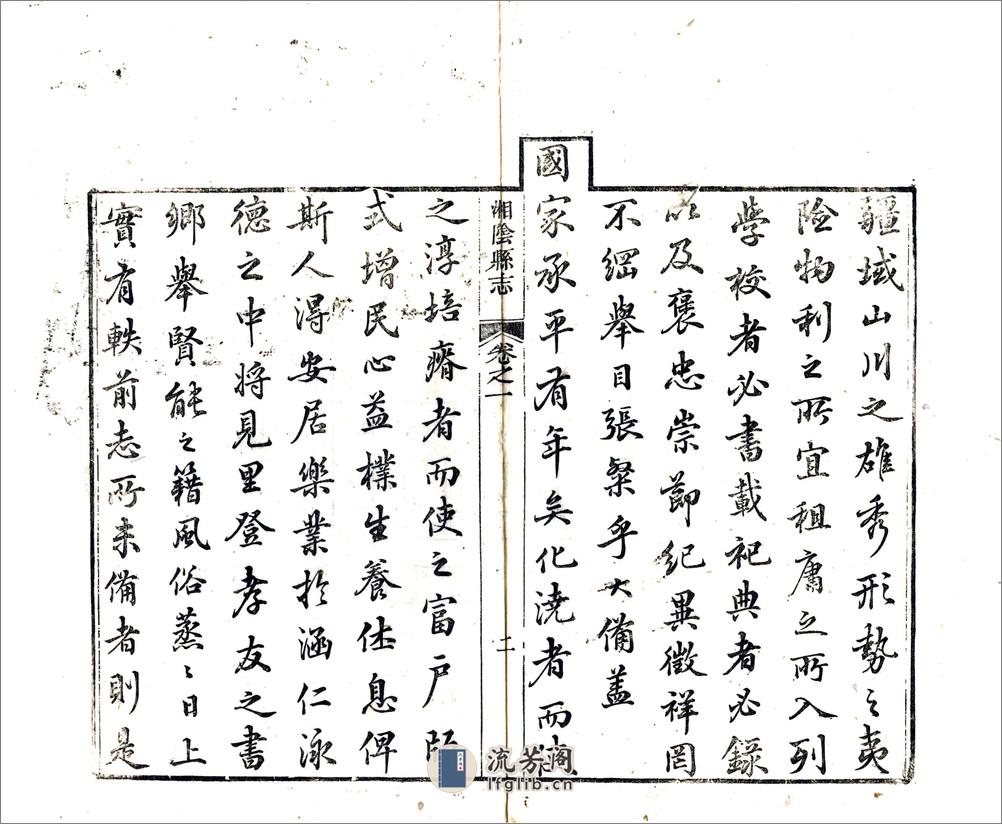 疆域山川之雄秀形勢之夷
險物利之所宜租庸之所入列
學校者必書載祀典者必錄
以及褒忠崇節紀異徵祥罔
不綱舉目張粲乎大備蓋
國家承平有年矣化澆者而
湘陰縣志 卷之一 二
之淳培瘠者而使之富戶
式增民心益樸生養休息俾
斯人得安居樂業於涵仁泳
德之中將見里登孝友之書
鄉舉賢能之籍風俗蒸〻日上
實有軼前志所未備者則是
流芳阁
lfglib.cn